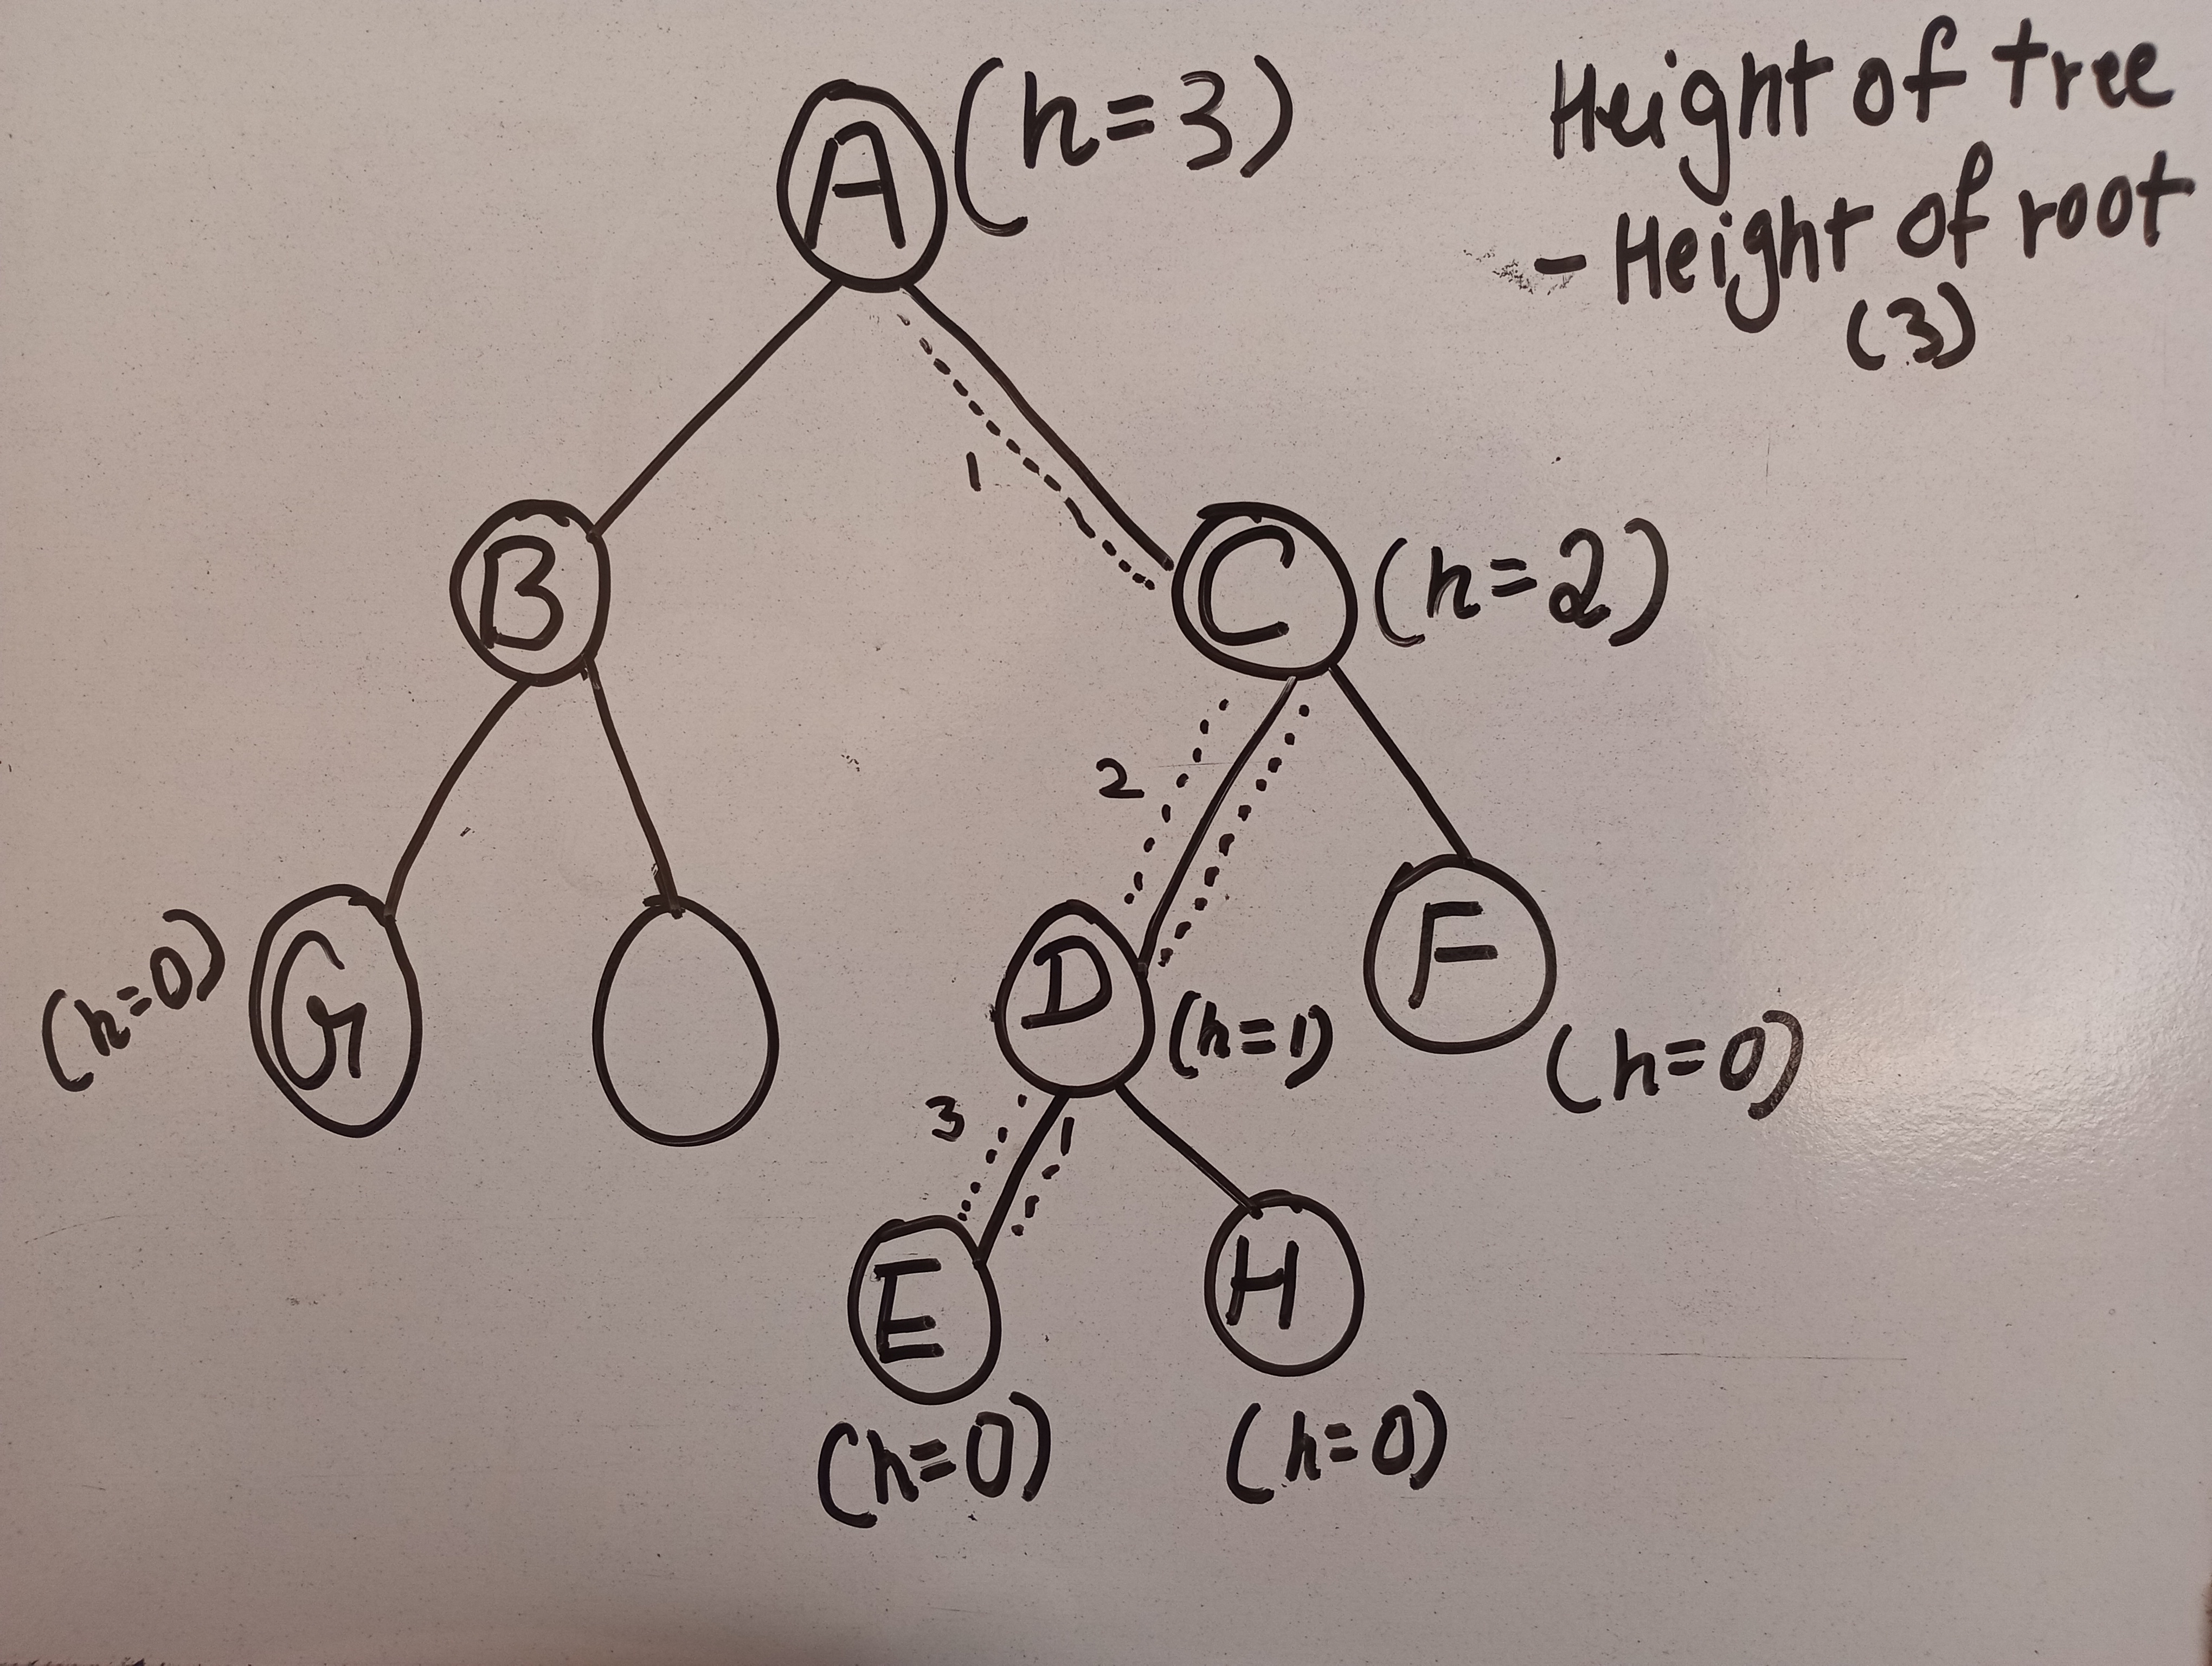 A (h=3)
Height of tree
- Height of root
(3)
1
B
C (h=2)
2
(h=0) G
D (h=1)
F (h=0)
3
1
E
H
(h=0)
(h=0)